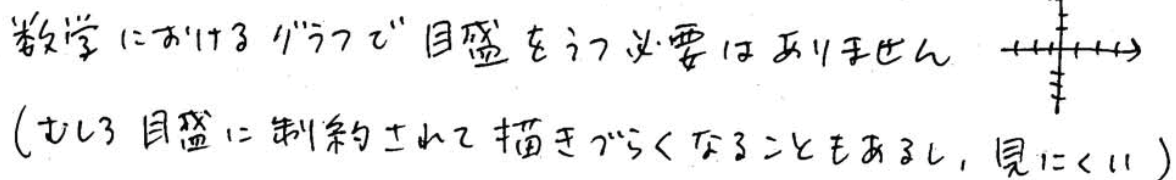 数学におけるグラフで目盛をうつ必要はありません
(むしろ目盛に制約されて描きづらくなることもあるし, 見にくい)